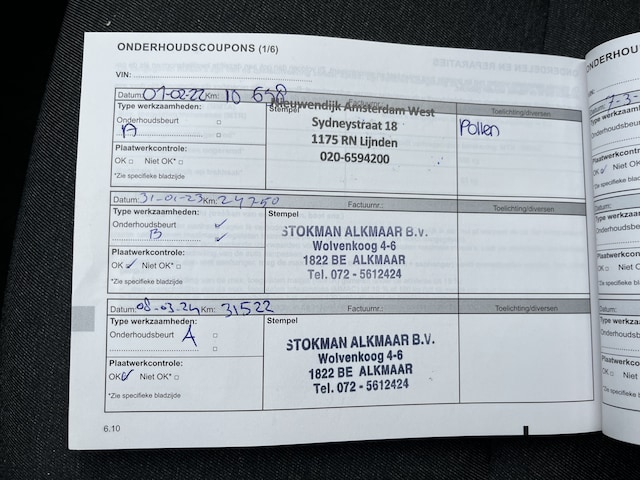 ONDERHOUDSCOUPONS (1/6)
VIN:
Datum: 01-02-22 Km: 10 658 Factuurnr.: Toelichting/diversen
Type werkzaamheden: Stempel Nieuwendijk Amsterdam West
Onderhoudsbeurt Sydneystraat 18 Pollen
A 1175 RN Lijnden
Plaatwerkcontrole: 020-6594200
OK Niet OK*
*Zie specifieke bladzijde
Datum: 31-01-23 Km: 24750 Factuurnr.: Toelichting/diversen
Type werkzaamheden: Stempel
Onderhoudsbeurt ✓ STOKMAN ALKMAAR B.V.
B ✓ Wolvenkoog 4-6
Plaatwerkcontrole: 1822 BE ALKMAAR
OK ✓ Niet OK* Tel. 072 - 5612424
*Zie specifieke bladzijde
Datum: 08-03-24 Km: 31522 Factuurnr.: Toelichting/diversen
Type werkzaamheden: Stempel
Onderhoudsbeurt A STOKMAN ALKMAAR B.V.
Wolvenkoog 4-6
Plaatwerkcontrole: 1822 BE ALKMAAR
OK ✓ Niet OK* Tel. 072 - 5612424
*Zie specifieke bladzijde
6.10